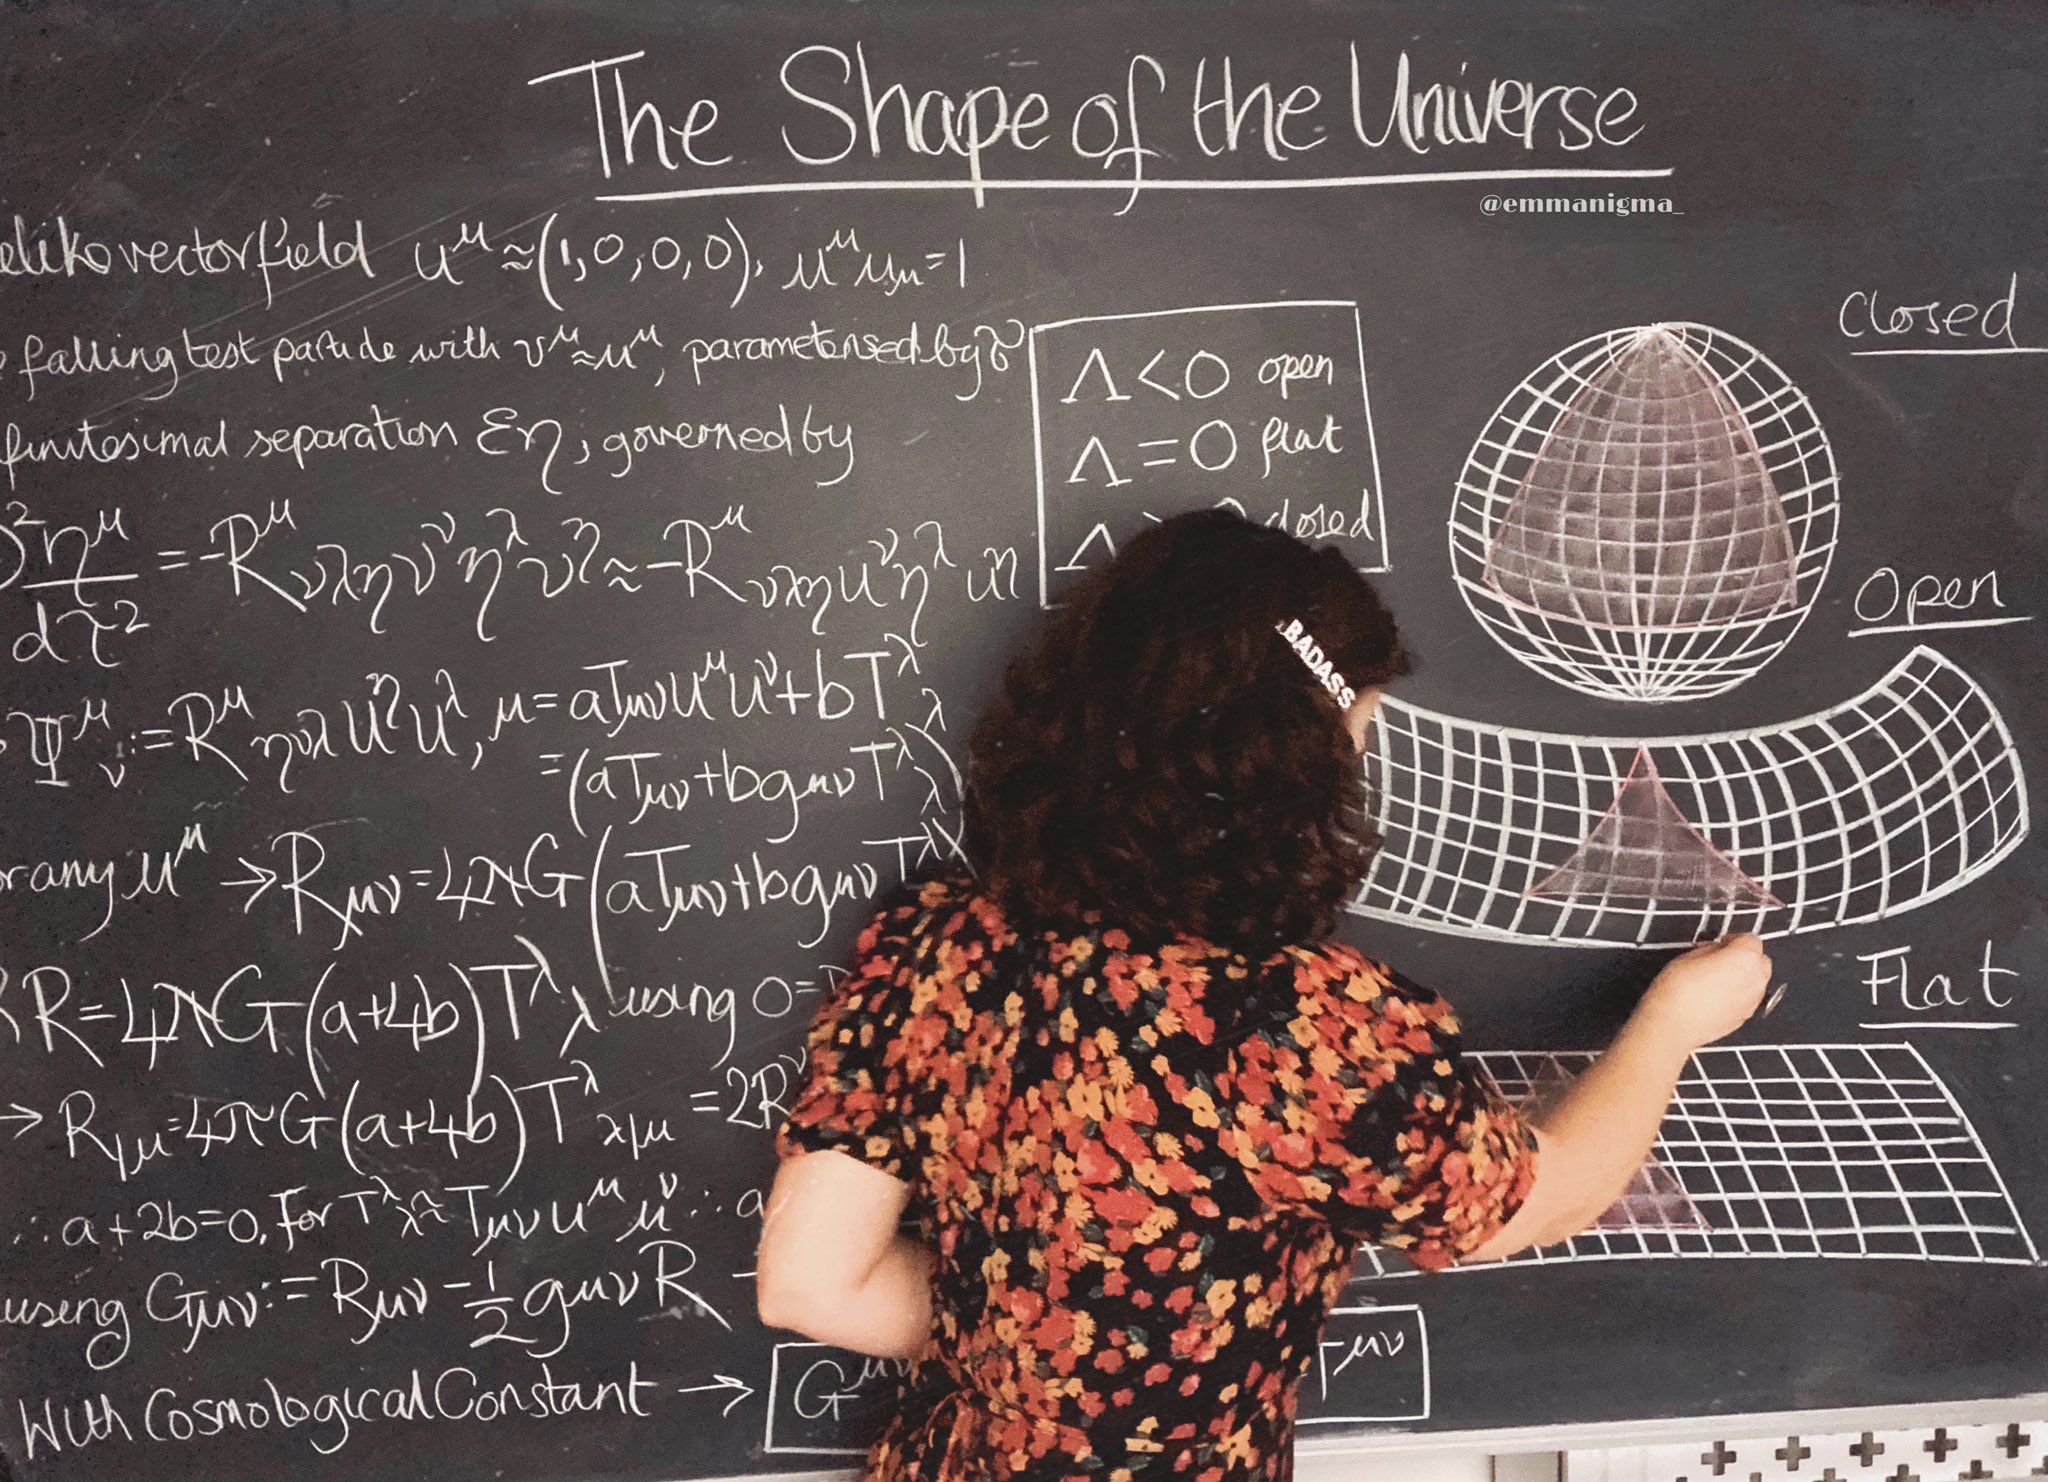 The Shape of the Universe
@emmanigma_
vector field u^μ ≈ (1,0,0,0), u^μ u_μ = 1
falling test particle with v^μ ≈ u^μ, parameterised by τ
finitesimal separation εη, governed by
D²η^μ/dτ² = -R^μ_νλη v^ν η^λ v^η ≈ -R^μ_νλη u^ν η^λ u^η
Ψ^μ_ν := R^μ_ηνλ u^η u^λ, μ = aT_μν u^μ u^ν + bT^λ_λ
= (aT_μν + bg_μν T^λ_λ)
or any u^μ → R_μν = 4πG(aT_μν + bg_μν T^λ
R = 4πG(a+4b)T^λ_λ using 0=
→ R_|μ = 4πG(a+4b)T^λ_λ|μ = 2R^ν
∴ a+2b=0. For T^λ_λ ≈ T_μν u^μ u^ν ∴ a
using G_μν := R_μν - 1/2 g_μν R -
With Cosmological Constant → G^μν T^μν
Λ<0 open
Λ=0 flat
Λ closed
Closed
Open
Flat
BADASS